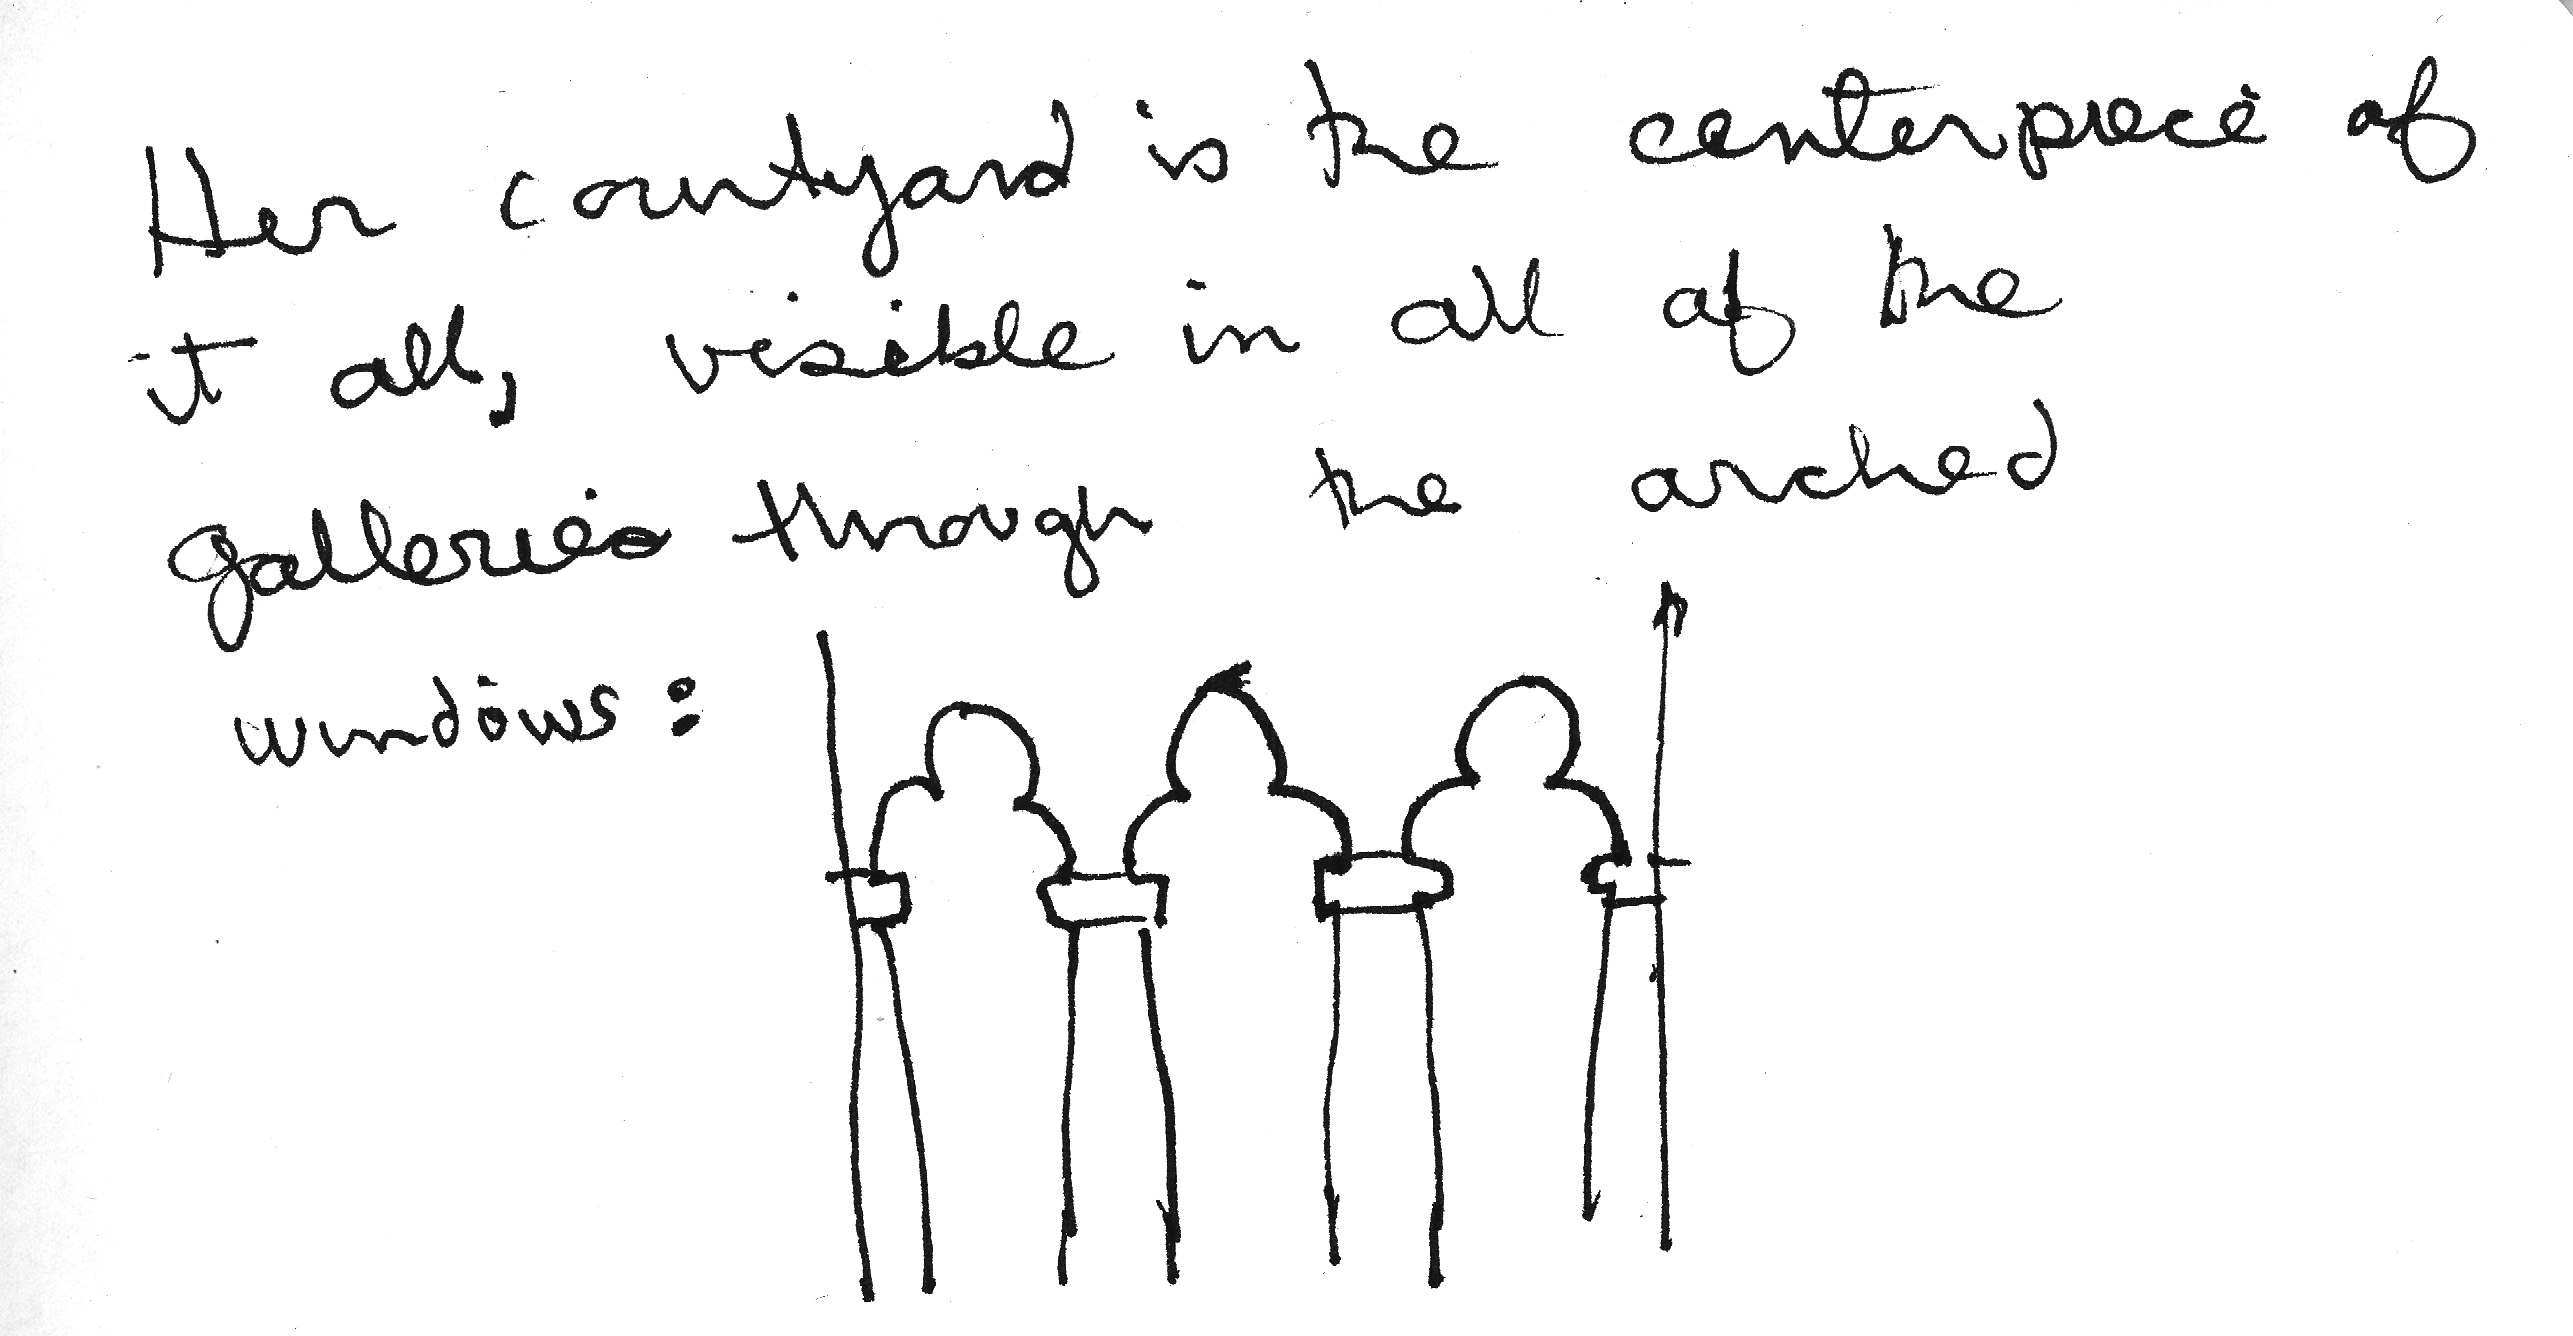 Her courtyard is the centerpiece of
it all, visible in all of the
galleries through the arched
windows: